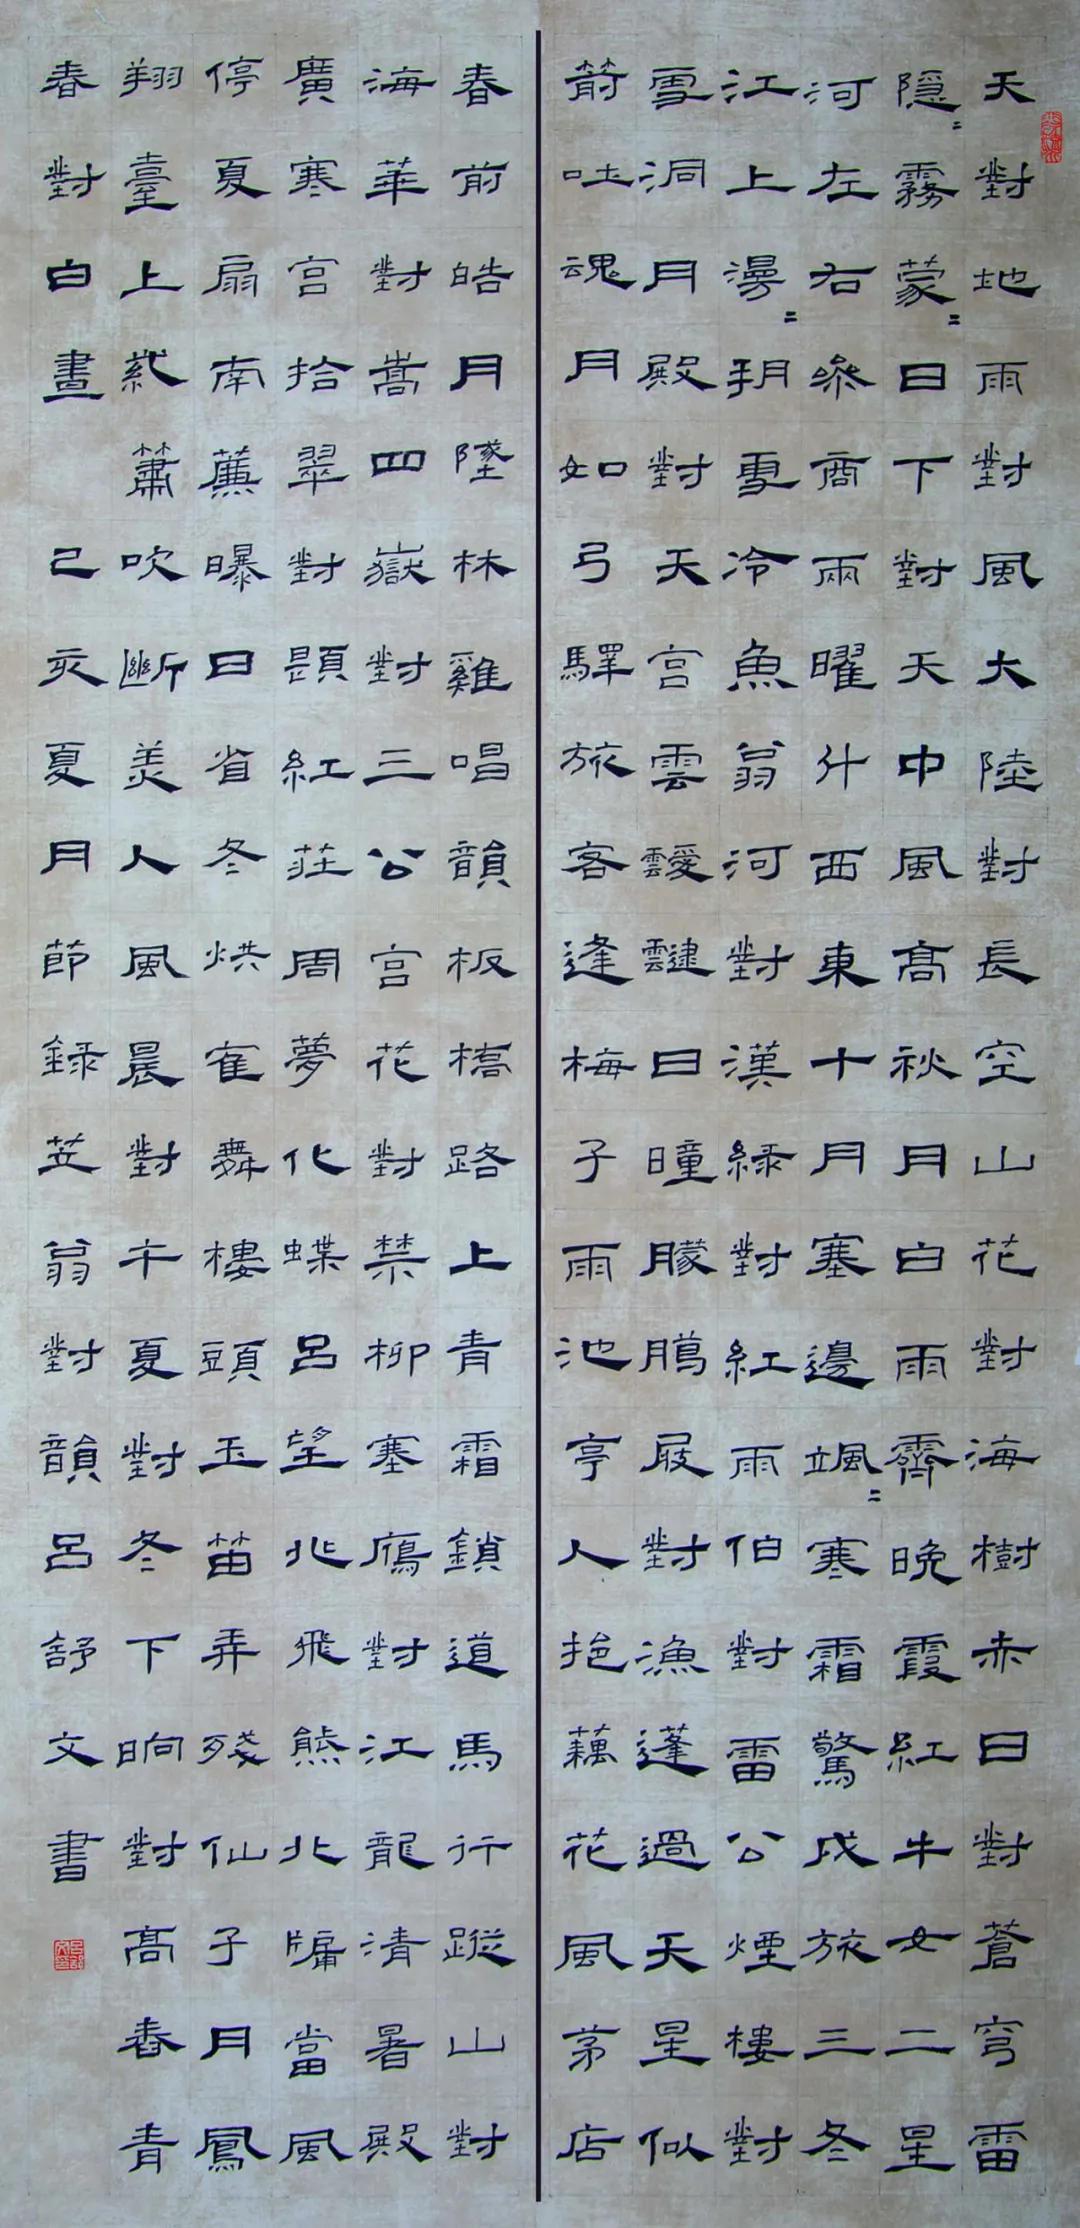 天對地雨對風大陸對長空山花對海樹赤日對蒼穹雷
隱〻霧蒙〻日下對天中風高秋月白雨霽晚霞紅牛女二星
河左右參商兩曜什西東十月塞邊颯〻寒霜驚戍旅三冬
江上漫〻朔雪冷魚翁河對漢綠對紅雨伯對雷公煙樓對
雪洞月殿對天宮雲靉靆日曈朦屐對漁蓬過天星似
箭吐魂月如弓驛旅客逢梅子雨池亭人挹藕花風茅店
春前皓月墜林雞唱韻板橋路上青霜鎖道馬行蹤山對
海華對嵩四嶽對三公宮花對禁柳塞鴈對江龍清暑殿
廣寒宮拾翠對題紅莊周夢化蝶呂望兆飛熊北牖當風
停夏扇南薰曝日省冬烘寉舞樓頭玉笛弄殘仙子月鳳
翔臺上紫簫吹斷美人風晨對午夏對冬下晌對高舂青
春對白晝 己亥夏月節録笠翁對韻呂舒文書